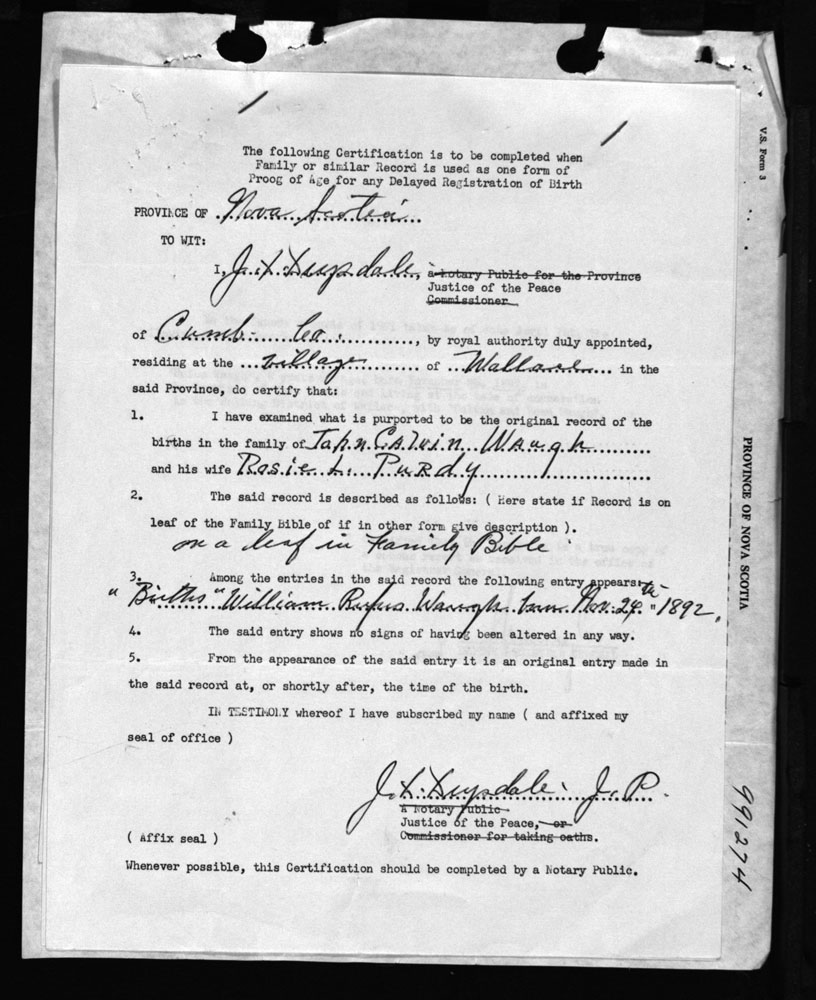 The following Certification is to be completed when
Family or similar Record is used as one form of
Proog of Age for any Delayed Registration of Birth
PROVINCE OF Nova Scotia
TO WIT:
I, J. X. Drysdale, a Notary Public for the Province
Justice of the Peace
Commissioner
of Cumb. Co., by royal authority duly appointed,
residing at the village of Wallace in the
said Province, do certify that:
1. I have examined what is purported to be the original record of the
births in the family of John Calvin Waugh
and his wife Rosie L. Purdy
2. The said record is described as follows: ( Here state if Record is on
leaf of the Family Bible of if in other form give description ).
on a leaf in Family Bible
3. Among the entries in the said record the following entry appears:
"Births" William Rufus Waugh born Nov. 24th" 1892.
4. The said entry shows no signs of having been altered in any way.
5. From the appearance of the said entry it is an original entry made in
the said record at, or shortly after, the time of the birth.
IN TESTIMONY whereof I have subscribed my name ( and affixed my
seal of office )
Drysdale. J. P.
A Notary Public
Justice of the Peace, or
( Affix seal ) Commissioner for taking oaths.
Whenever possible, this Certification should be completed by a Notary Public.
V.S. Form 3
PROVINCE OF NOVA SCOTIA
991274